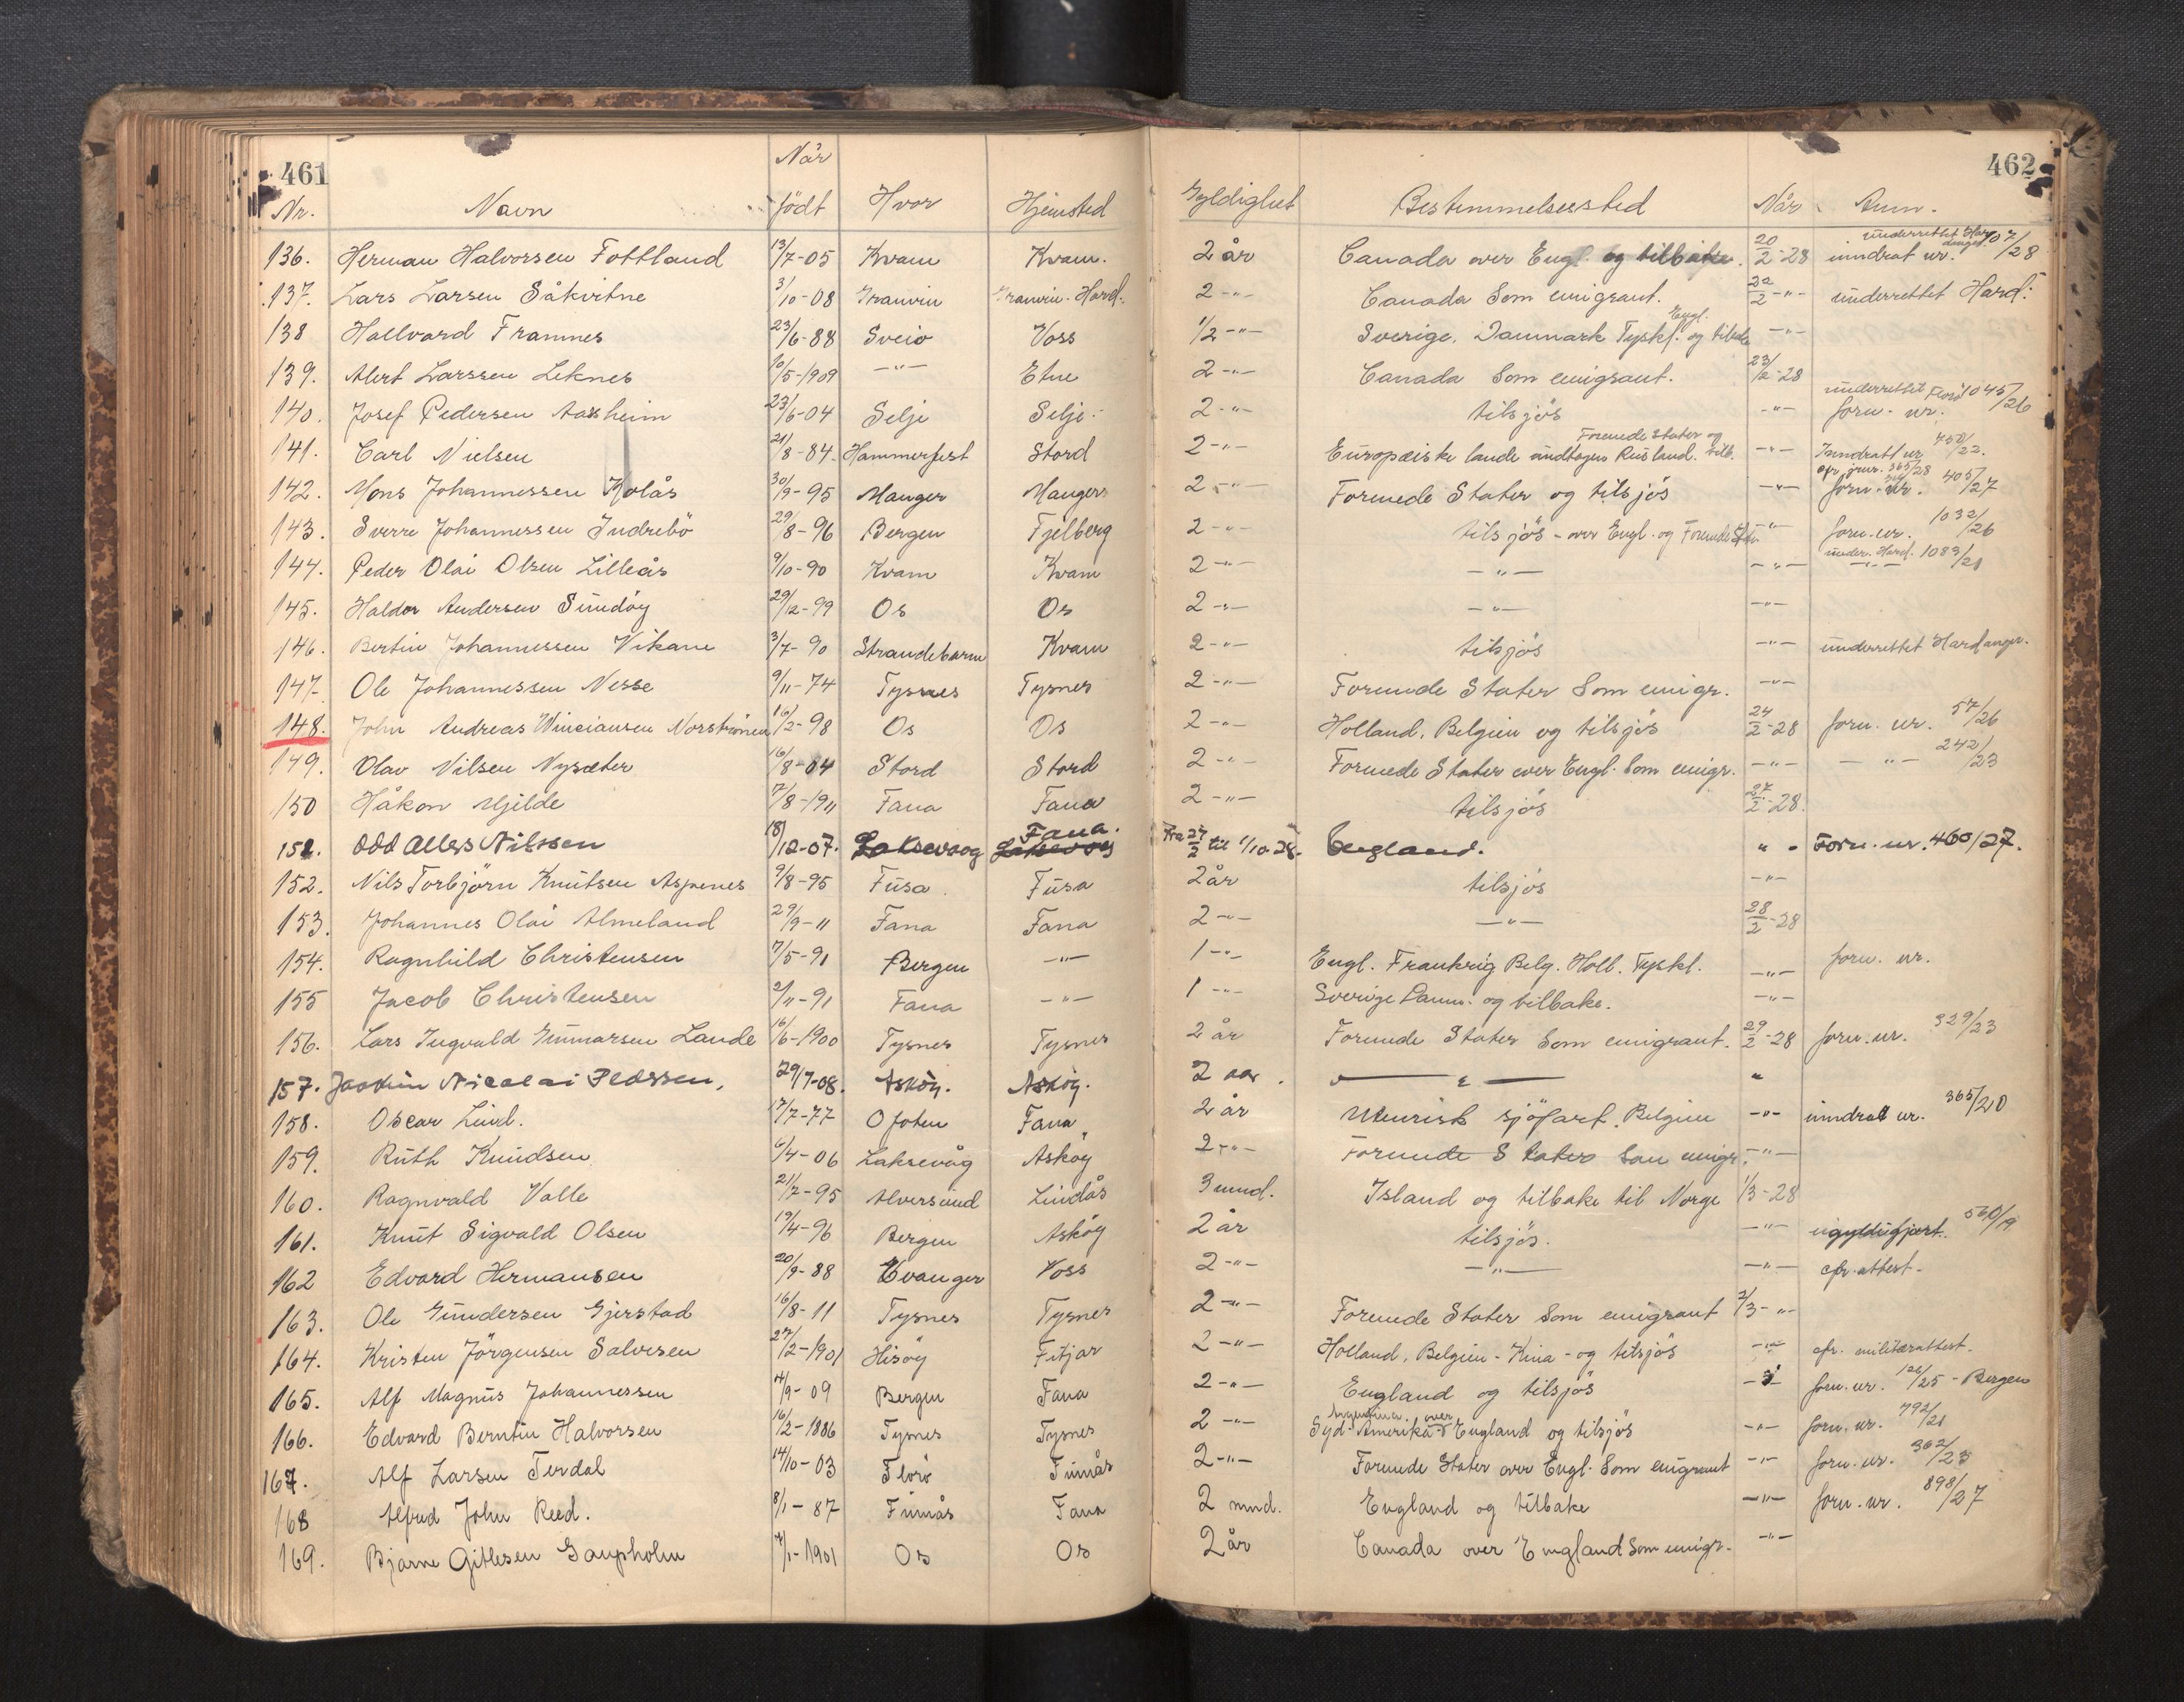 461 462
Nr. Navn Når født Hvor Hjemsted Gyldighet Bestemmelsessted Når Anm.
136. Herman Halvorsen Fottland 13/7-05 Kvam Kvam. 2 år Canada over Engl. og tilbake. 20/2-28 inndrat nr. 107/28 underrettet Hardanger
137. Lars Larsen Såkvitne 3/10-08 Granvin Granvin. Hard. 2 -"- Canada som emigrant. 22/2 -"- underrettet Hard:
138 Hallvard Framnes 23/6-88 Sveio Voss 1/2 -"- Sverige. Danmark Tyskl. Engl. og tilbake -"-
139. Alert Larssen Leknes 10/5-1909 -"- Etne 2 -"- Canada som emigrant. 23/2-28
140. Josef Pedersen Aasheim 23/6-04 Selje Selje.- 2 -"- tilsjøs -"- underrettet Florø forn. nr. 1045/26
141. Carl Nielsen 21/8-84. Hammerfest Stord 2 -"- Europæiske lande undtagen Rusland. Forenede Stater og tilb. -"- Inndratt nr 750/22.
142. Mons Johannessen Kolås 30/9-95 Manger Manger 2 -"- Forenede Stater og tilsjøs -"- forn. nr. 405/27
143. Sverre Johannessen Indrebö 29/8-96 Bergen Fjelberg 2 -"- tilsjøs - over Engl. og Forenede Stat. -"- forn. nr. 1032/26
144. Peder Olai Olsen Lilleås 9/10-90 Kvam Kvam 2 -"- -"- -"- under. Hard. -"- 1089/21
145. Haldor Andersen Sundöy 29/12-99 Os Os 2 -"- -"- -"-
146. Bertin Johannessen Vikane 3/7-90 Strandebarm Kvam 2 -"- tilsjøs -"- underrettet Hardanger.
147. Ole Johannessen Nesse 9/11-74 Tysnes Tysnes 2 -"- Forenede Stater som emigr. -"-
148. John Andreas Winciansen Norströnen 16/2-98 Os Os 2 -"- Holland, Belgien og tilsjøs 24/2-28 forn. nr. 57/26
149. Olav Nilsen Nysæter 16/8-04 Stord Stord 2 -"- Forenede Stater over Engl. som emigr. -"- -"- 242/23
150 Håkon Mjelde 7/8-1911 Fana Fana 2 -"- tilsjøs 27/2-28.
151. Odd Allers Nilssen 18/12-07. Laksevaag Laksevåg Fana. Fra 27/2 til 1/10-28. England. " - Forn. nr. 460/27.
152. Nils Torbjörn Knutsen Aspenes 9/8-95 Fusa Fusa 2 år tilsjøs -"-
153. Johannes Olai Almeland 29/9-11 Fana Fana 2 -"- -"- 28/2-28
154. Ragnhild Christensen 7/5-91 Bergen -"- 1 -"- Engl. Frankrig Belg. Holl. Tyskl. -"- forn. nr.
155 Jacob Christensen 2/11-91 Fana -"- 1 -"- Sverige Danm. og tilbake. -"-
156. Lars Ingvald Gunnarsen Lande 16/6-1900 Tysnes Tysnes 2 år Forenede Stater som emigrant. 29/2-28 forn. nr. 329/23
157. Joakim Nicolai Pedssen, 29/7-08. Asköy. Asköy. 2 aar. -"- "
158. Oscar Lind. 17/7-77 Ofoten Fana 2 år Utenrisk sjöfart. Belgien -"- inndratt nr. 365/20
159. Ruth Knudsen 6/4-06 Laksevåg Asköy 2 -"- Forenede Stater som emigr. -"-
160. Ragnvald Valle 21/7-95 Alversund Lindås 3 mnd. Island og tilbake til Norge 1/3-28
161. Knut Sigvald Olsen 19/4-96 Bergen Asköy 2 år tilsjøs. -"- ugyldigfjort. 560/19
162 Edvard Hermansen 20/9-88 Evanger Voss 2 -"- -"- -"- cfr. attest.
163. Ole Gundersen Gjerstad 16/8-11 Tysnes Tysnes 2 -"- Forenede Stater som emigrant 2/3- "-
164. Kristen Jörgensen Salvesen 27/2-1901 Hisöy Fitjar 2 -"- Holland, Belgien - Kina - og tilsjøs -"- cfr. militærattest.
165. Alf Magnus Johannessen 4/9-09 Bergen Fana 2 -"- England og tilsjøs -"- forn. nr. 126/25 - Bergen
166. Edvard Berntin Halvorsen 16/2-1886 Tysnes Tysnes 2 -"- Syd-Amerika Argentina. over England og tilsjøs -"- forn. nr. 792/21
167. Alf Larsen Terdal 14/10-03 Florö Finnås 2 -"- Forenede Stater over Engl. som emigrant -"- forn. nr. 362/23
168 Alfred John Reed. 8/1-87 Finnås Fana 2 mnd. England og tilbake -"- forn. nr. 898/27
169. Bjarne Gitlesen Gaupholm 4/1-1901 Os Os 2 år Canada over England som emigr. -"-